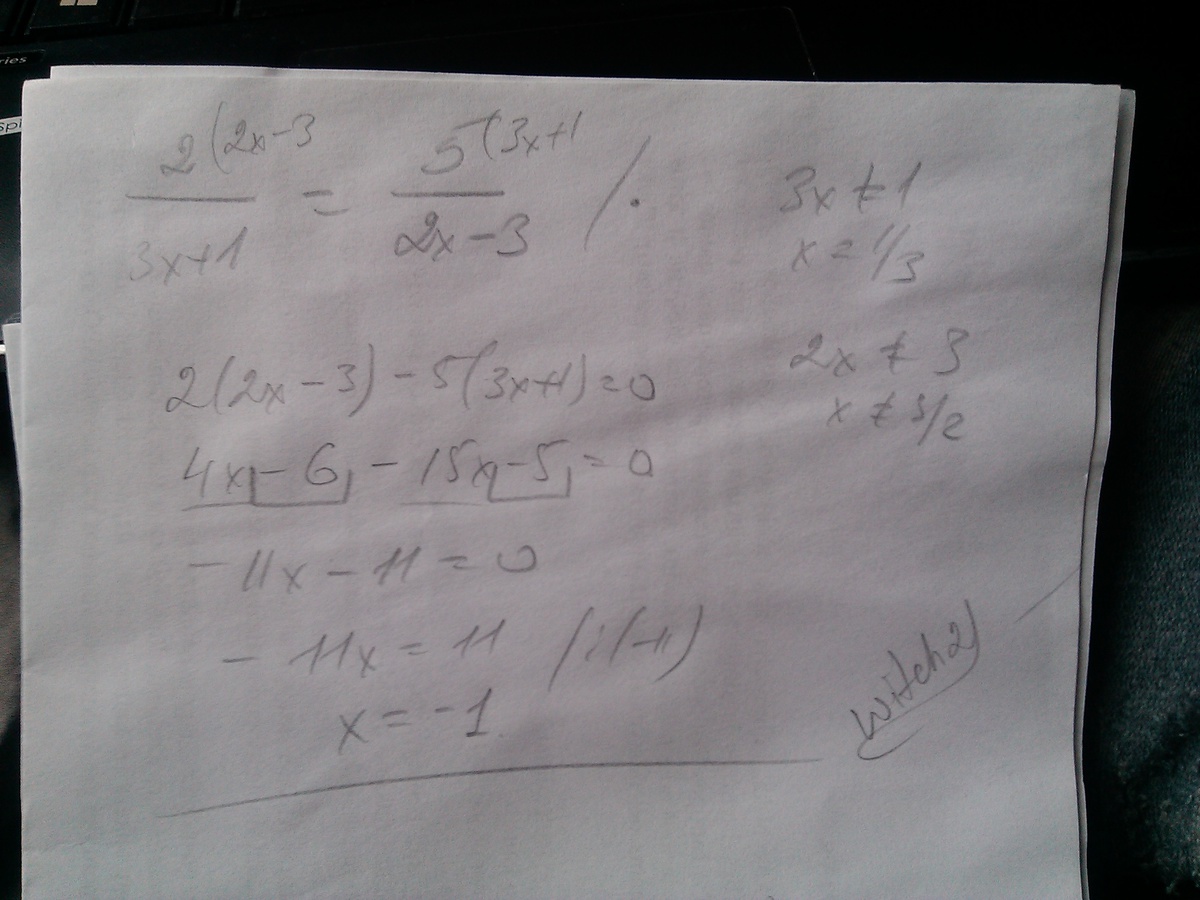 ries
Spi
2(2x-3 / 3x+1 = 5(3x+1 / 2x-3 /·
3x ≠ 1
x = 1/3
2x ≠ 3
x ≠ 3/2
2(2x-3)-5(3x+1)=0
4x-6-15x-5=0
-11x-11=0
-11x=11 /:(-11)
x=-1
witch2